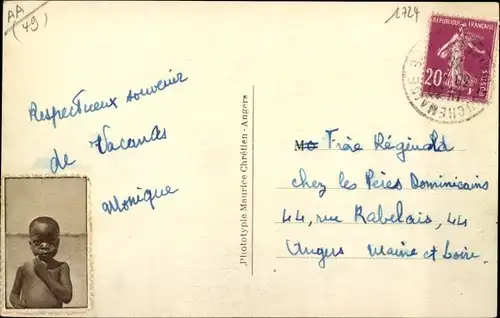 AA
(49)
1724
REPUBLIQUE FRANÇAISE
20c
Respectueux souvenir
de Vacances
Monique
Phototypie Maurice Chrétien - Angers
M
Frère Réginald
chez les Pères Dominicains
44, rue Rabelais, 44
Angers Maine et Loire.